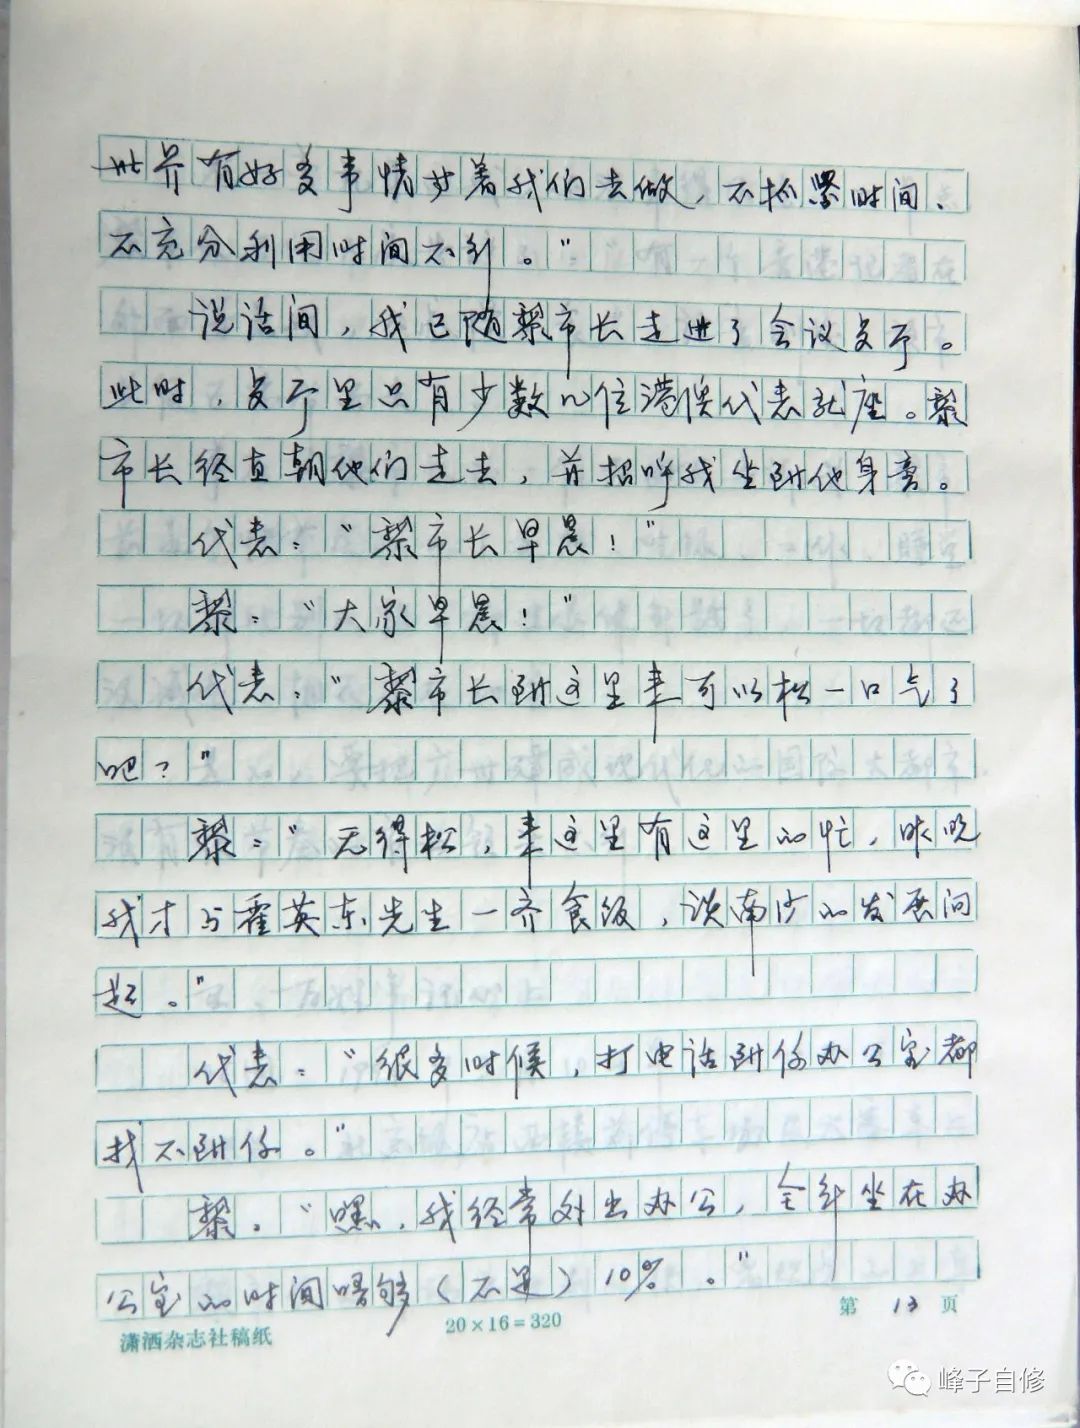 世界有好多事情等着我们去做，不抓紧时间、
不充分利用时间不行。”
说话间，我已随黎市长走进了会议客厅。
此时，客厅里只有少数几位港澳代表就座。黎
市长径直朝他们走去，并招呼我坐到他身旁。
代表：“黎市长早晨！”
黎：“大家早晨！”
代表：“黎市长到这里来可以松一口气了
吧？”
黎：“无得松，来这里有这里的忙，昨晚
我才与霍英东先生一齐食饭，谈南沙的发展问
题。”
代表：“很多时候，打电话到你办公室都
找不到你。”
黎：“嘿，我经常外出办公，全年坐在办
公室的时间唔够（不足）10%。”
潇洒杂志社稿纸
20×16=320
第 13 页
峰子自修